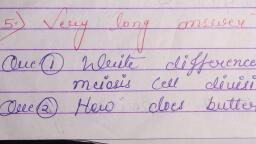 5.) Very long answer
Que ① Write difference
meiosis cell divisi
Que ② How does butter